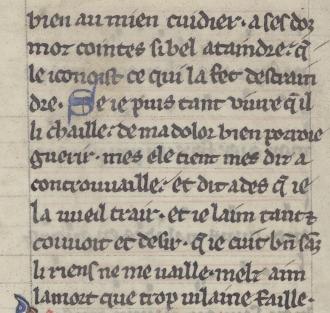 bien au mien cuidier · a ses douz
moz cointes si bel ataindre · q̃
le iconoist ce qui la fet destrain
dre · Se ie puis tant vivre q̃ il
li chaille · de ma dolor bien porroie
guerir · mes ele tient mes diz a
controuvaille · et dit ades q̃ ie
la vueil trair · et ie laim tant ⁊
couvoit et desir · q̃ ie cuit bñ
li riens ne me vaille · melz aim
la mort que trop vilaine faille ·